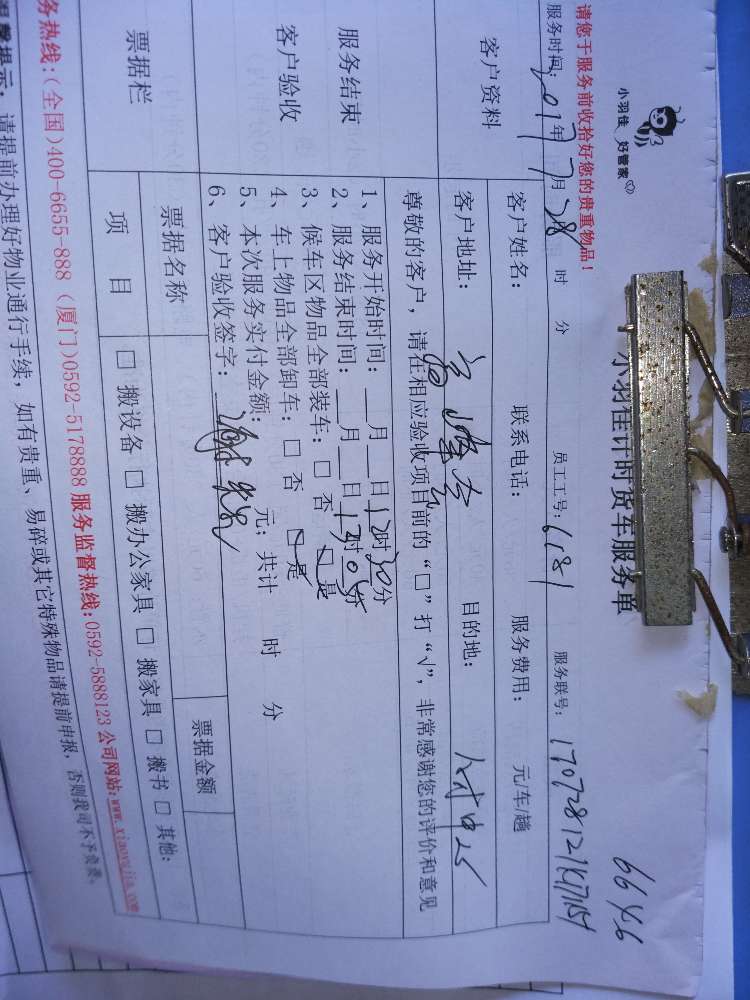 小羽佳 好管家
66466
小羽佳计时货车服务单
请您于服务前收拾好您的贵重物品!
服务时间: 2017年 7月 28 时 分 员工工号: 6181 服务联号:
客户资料
客户姓名: 联系电话: 服务费用: 元/车/趟
客户地址: 目的地:
服务结束
客户验收
尊敬的客户,请在相应验收项目前的“□”打“√”,非常感谢您的评价和意见
1、服务开始时间:__月__日12时30分
2、服务结束时间:__月__日17时05分
3、候车区物品全部装车:□ 否 □ 是
4、车上物品全部卸车:□ 否 □ 是
5、本次服务实付金额: 元;共计 时 分
6、客户验收签字:
票据栏
票据名称 票据金额
项 目 □ 搬设备 □ 搬办公家具 □ 搬家具 □ 搬书 □ 其他:
务热线:(全国)400-6655-888 (厦门)0592-5178888 服务监督热线:0592-5888123 公司网站:www.xiaoyujia.com
提示:请提前办理好物业通行手续,如有贵重、易碎或其它特殊物品请提前申报,否则我司不予负责。